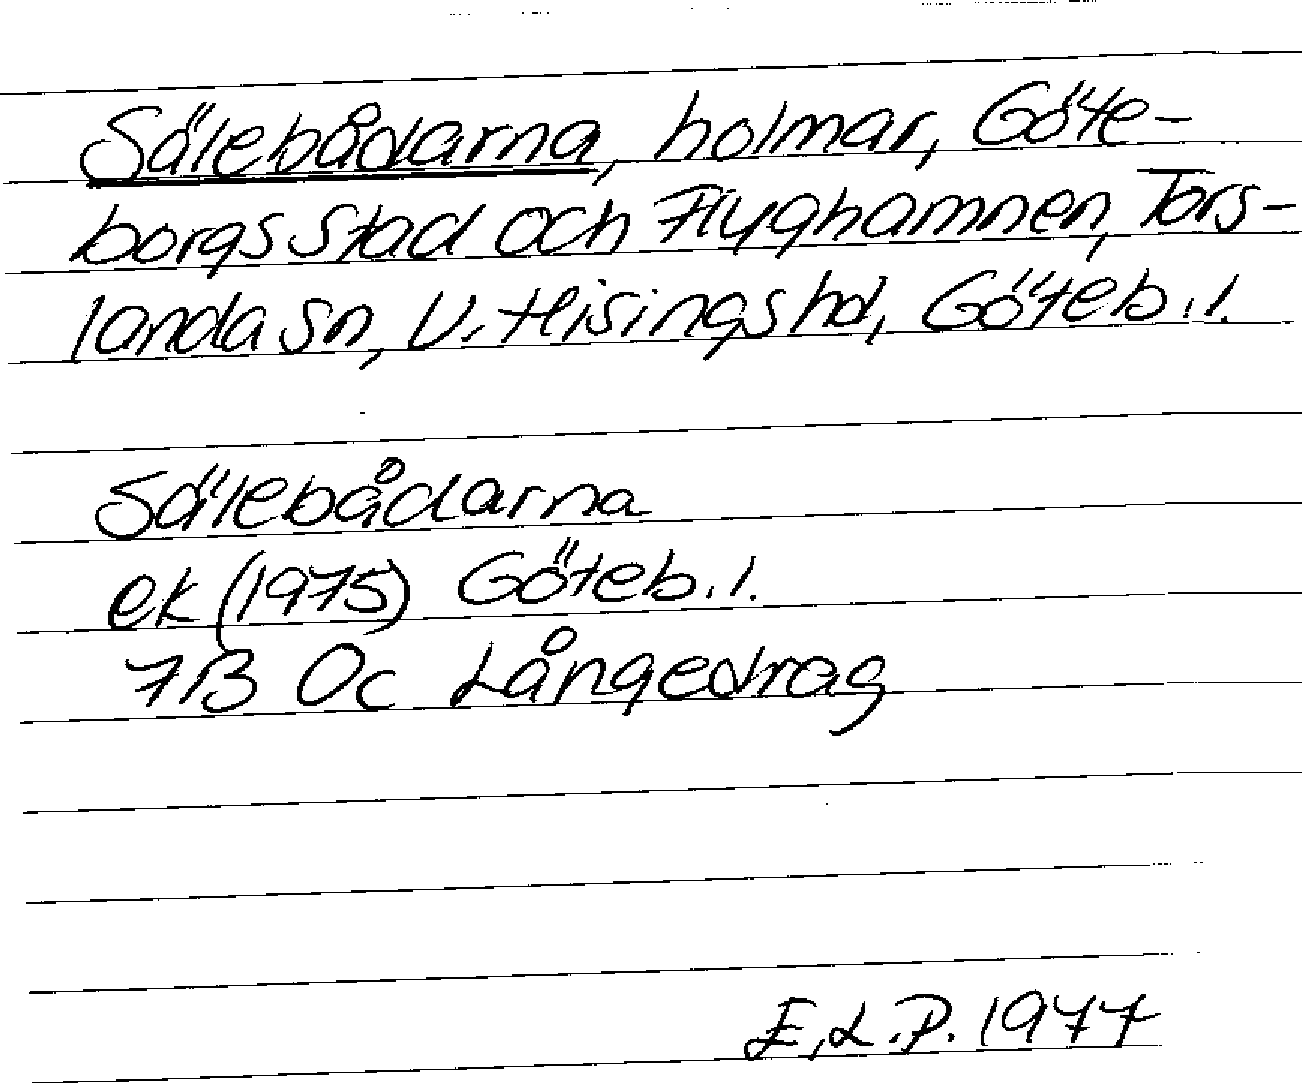 Sälebådarna, holmar, Göte-
borgs stad och Flyghamnen, Tors-
landa sn, V. Hisings hd, Göteb.l.
Sälebådarna
ek (1975) Göteb.l.
7B 0c Långedrag
E.L.P. 1977